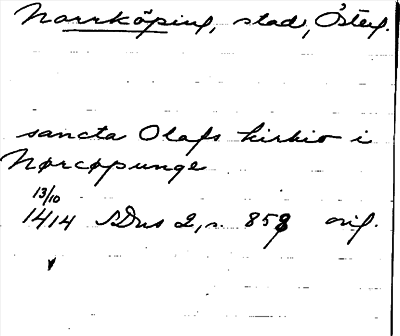 Norrköping, stad, Österg.
sancta Olafs kirkio i
Nørcøpunge
13/10
1414 SDns 2, s. 858 orig.